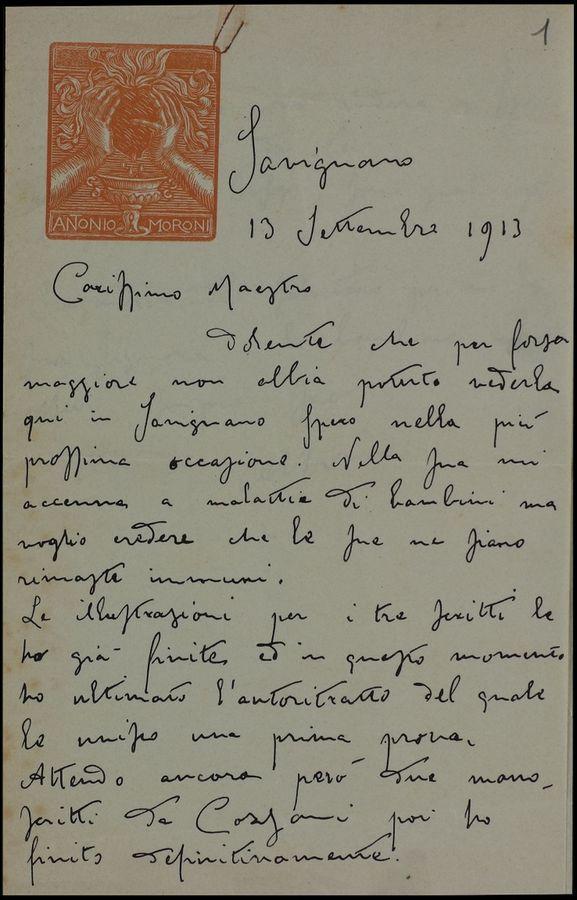 1
ANTONIO MORONI
Savignano
13 Settembre 1913
Carissimo Maestro
Dolente che per forza
maggiore non abbia potuto vederla
qui in Savignano spero nella più
prossima occasione. Nella sua mi
accenna a malattie di bambini ma
voglio credere che le sue ne siano
rimaste immuni.
Le illustrazioni per i tre scritti le
ho già finite ed in questo momento
ho ultimato l'autoritratto del quale
le unisco una prima prova.
Attendo ancora però due mano-
scritti da Cozzani poi ho
finito definitivamente.